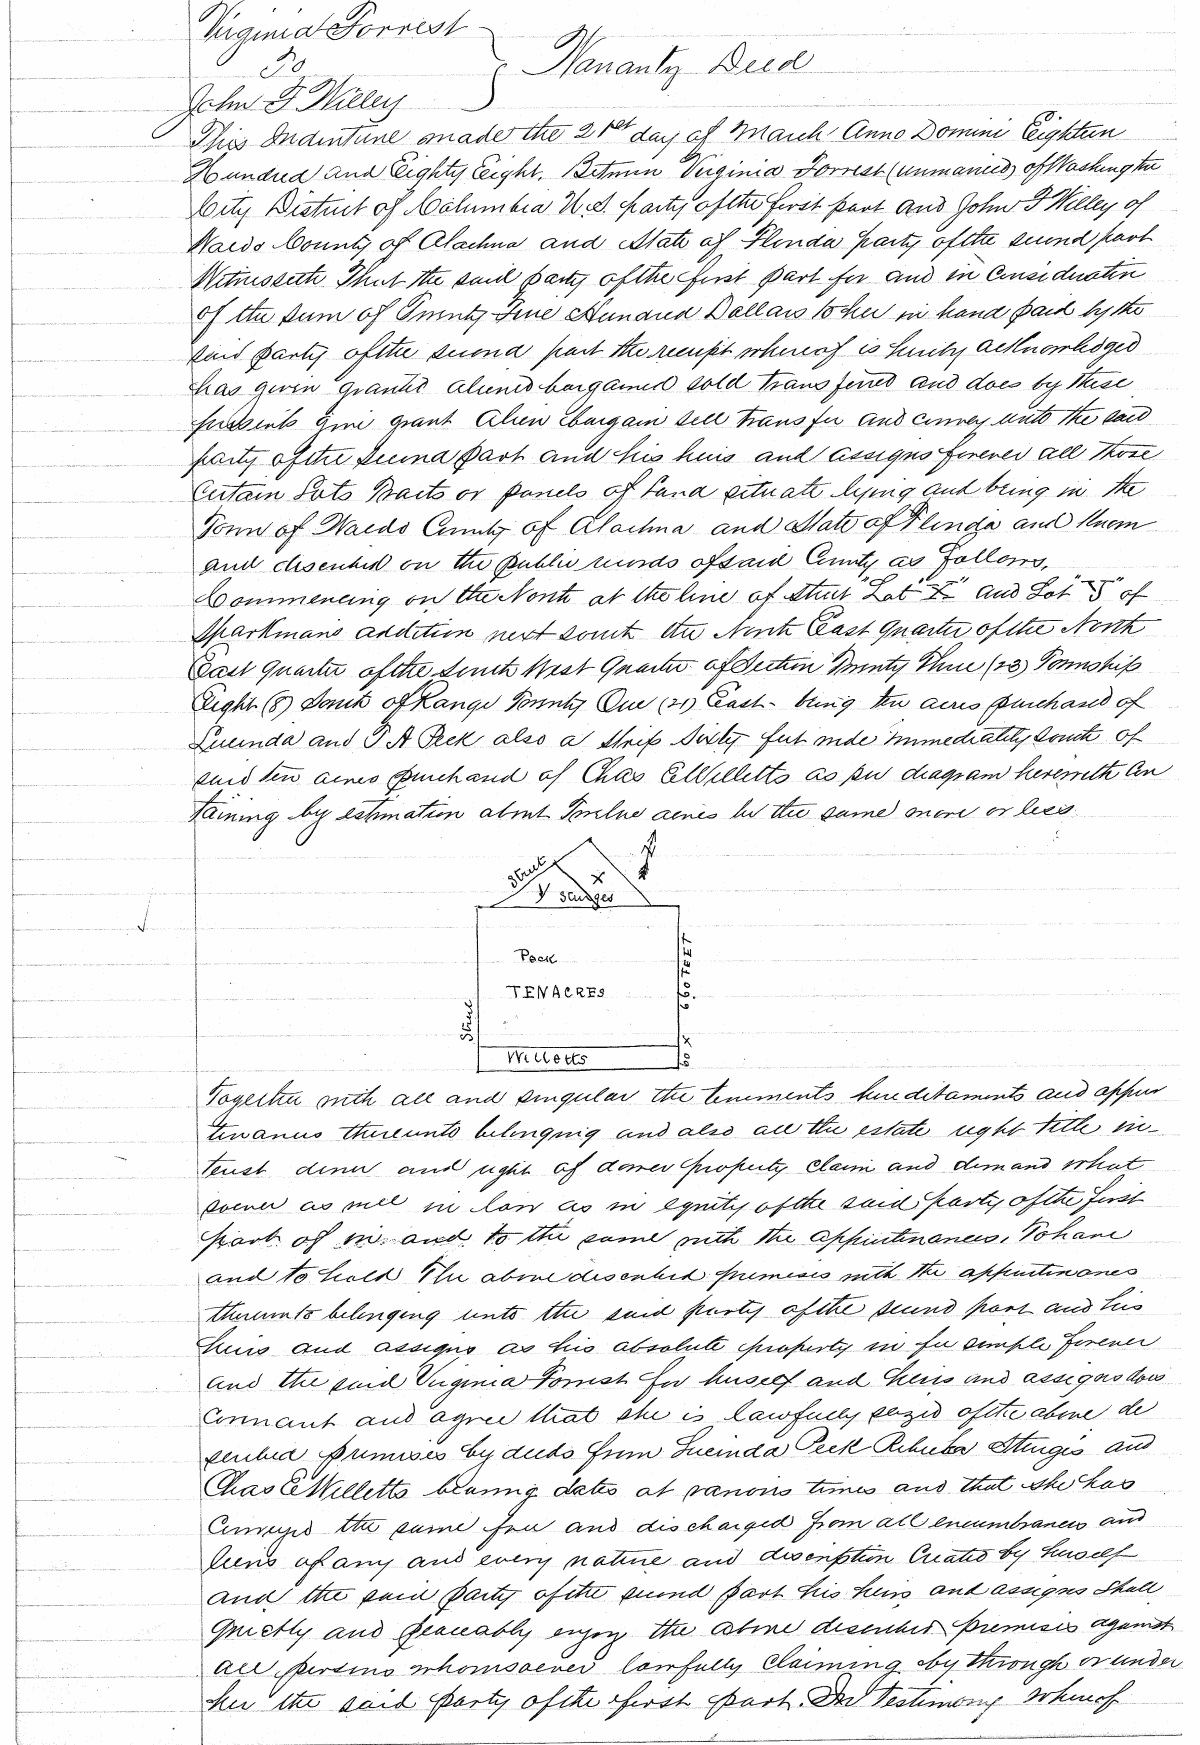 Virginia Forrest
To
Warranty Deed
John F Willey
This Indenture made the 21st day of March Anno Domini Eighteen
Hundred and Eighty Eight. Between Virginia Forrest (unmarried) of Washington
City District of Columbia U.S. party of the first part and John F Willey of
Waldo County of Alachua and State of Florida party of the second part
Witnesseth That the said party of the first part for and in Consideration
of the sum of Twenty Five Hundred Dollars to her in hand paid by the
said party of the second part the receipt whereof is hereby acknowledged
has given granted aliened bargained sold transferred and does by these
presents give grant alien bargain sell transfer and convey unto the said
party of the second part and his heirs and assigns forever all those
Certain Lots Tracts or parcels of Land situate lying and being in the
Town of Waldo County of Alachua and State of Florida and known
and described on the public records of said County as Follows,
Commencing on the North at the line of street "Lot X" and Lot "V" of
Sparkmans addition next south the North East Quarter of the North
East Quarter of the South West Quarter of Section Twenty Three (23) Township
Eight (8) South of Range Twenty One (21) East - being ten acres purchased of
Lucinda and T A Peck also a strip Sixty feet wide immediately south of
said ten acres purchased of Chas E Willetts as per diagram herewith Con
taining by estimation about Twelve acres be the same more or less
Street
X
V Sturges
Peck
TENACRES
60. FEET
Street
Willetts
60
Together with all and singular the tenements hereditaments and appur
tenances thereunto belonging and also all the estate right title in-
terest dower and right of dower property claim and demand what
soever as well in law as in equity of the said party of the first
part of in and to the same with the appurtenances, To have
and to hold The above described premises with the appurtenances
thereunto belonging unto the said party of the second part and his
heirs and assigns as his absolute property in fee simple forever
and the said Virginia Forrest for herself and heirs and assigns does
Covenant and agree that she is lawfully seized of the above de
scribed premises by deeds from Lucinda Peck Rebecka Sturgis and
Chas E Willetts bearing dates at various times and that she has
Conveyed the same free and discharged from all encumbrances and
liens of any and every nature and description Created by herself
and the said party of the second part his heirs and assigns Shall
quietly and peaceably enjoy the above described premises against
all persons whomsoever lawfully Claiming by through or under
her the said party of the first part. In Testimony Whereof